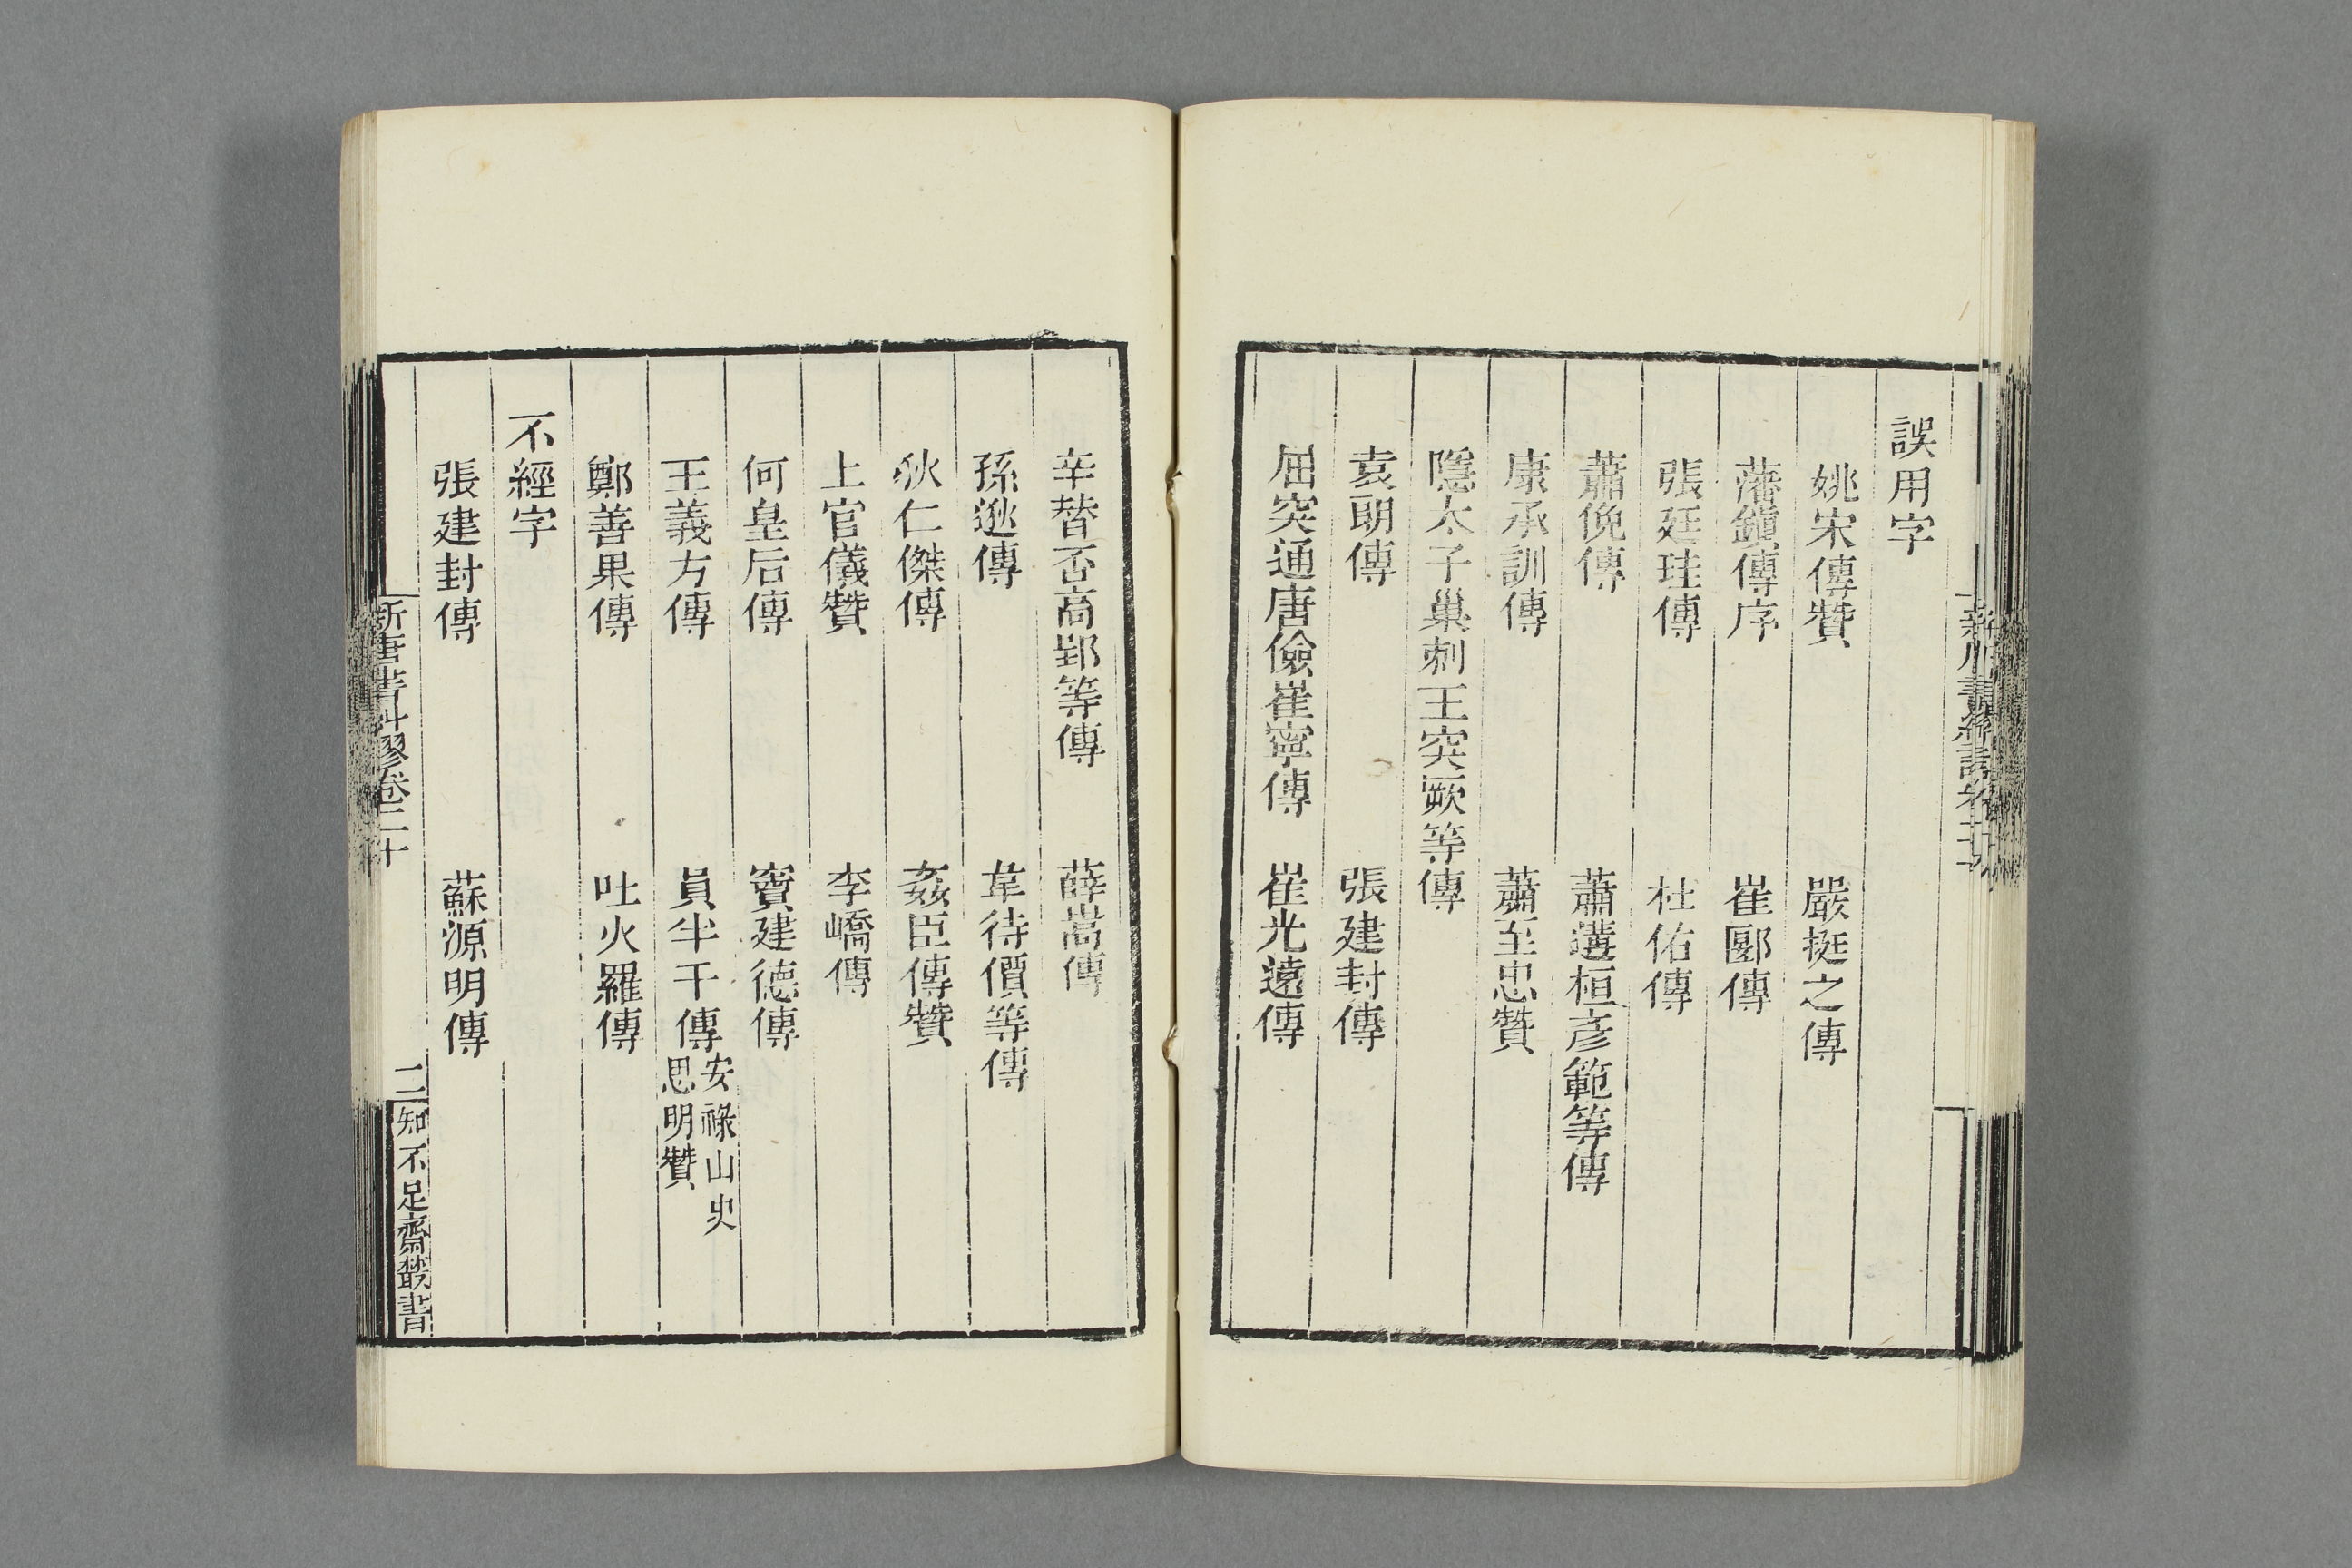 誤用字
姚宋傳贊　嚴挺之傳
藩鎮傳序　崔郾傳
張廷珪傳　杜佑傳
蕭俛傳　蕭遘桓彥範等傳
康承訓傳　蕭至忠贊
隱太子巢剌王突厥等傳
袁朗傳　張建封傳
屈突通唐儉崔寧傳　崔光遠傳
辛替否高郢等傳　薛嵩傳
孫逖傳　韋待價等傳
狄仁傑傳　姦臣傳贊
上官儀贊　李嶠傳
何皇后傳　竇建德傳
王義方傳　員半千傳安祿山史思明贊
鄭善果傳　吐火羅傳
不經字
張建封傳　蘇源明傳
新唐書糾謬卷二十　二　知不足齋叢書